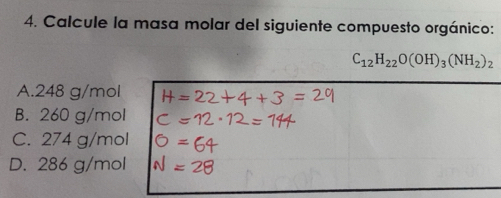 4. Calcule la masa molar del siguiente compuesto orgánico:
C₁₂H₂₂O(OH)₃(NH₂)₂
A.248 g/mol
B. 260 g/mol
C. 274 g/mol
D. 286 g/mol
H = 22+4+3 = 29
C = 12·12 = 144
O = 64
N = 28